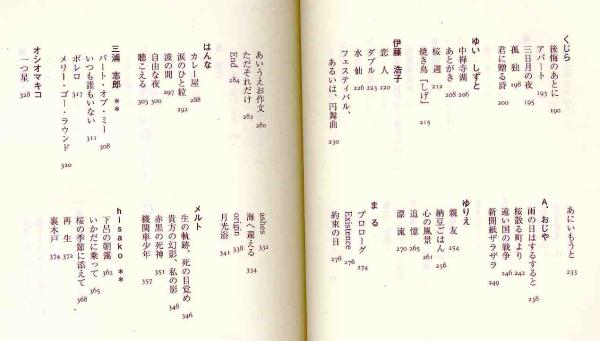 くじら
後悔のあとに 190
アパート 193
三日月の夜 195
孤独 198
君に贈る詩 200
ゆい しずと
中禅寺湖 206
あとがき 208
桜週 212
焼き鳥「しげ」 215
伊藤 浩子
恋人 220
ダブル 223
水仙 226
フェスティバル、
あるいは、円舞曲 230
あにいもうと 233
A.おじや
雨の日はするすると 238
桜散る町より 242
遠い国の戦争 246
新聞紙ザラザラ 249
ゆりえ
親友 254
納豆ごはん 256
心の風景 261
追憶 265
漂流 270
まる
プロローグ 274
Existence 276
約束の日 278
あいうえお作文 280
ただそれだけ 282
End 284
はんな
カレー屋 288
涙のひと粒 292
波の間 297
自由な夜 300
聴こえる 303
三浦 志郎 **
パート・オブ・ミー 308
いつも誰もいない 311
ボレロ 317
メリー・ゴー・ラウンド 320
オシオマキコ
一つ星 328
ashes 332
海へ還える 334
origin 338
月光浴 341
メルト
生の軌跡、死の目覚め 346
貴方の幻影、私の影 348
赤黒の死神 351
機関車少年 357
hisako **
下呂の朝靄 362
いかだに乗って 365
桜の季節に添えて 368
再生 372
裏木戸 374